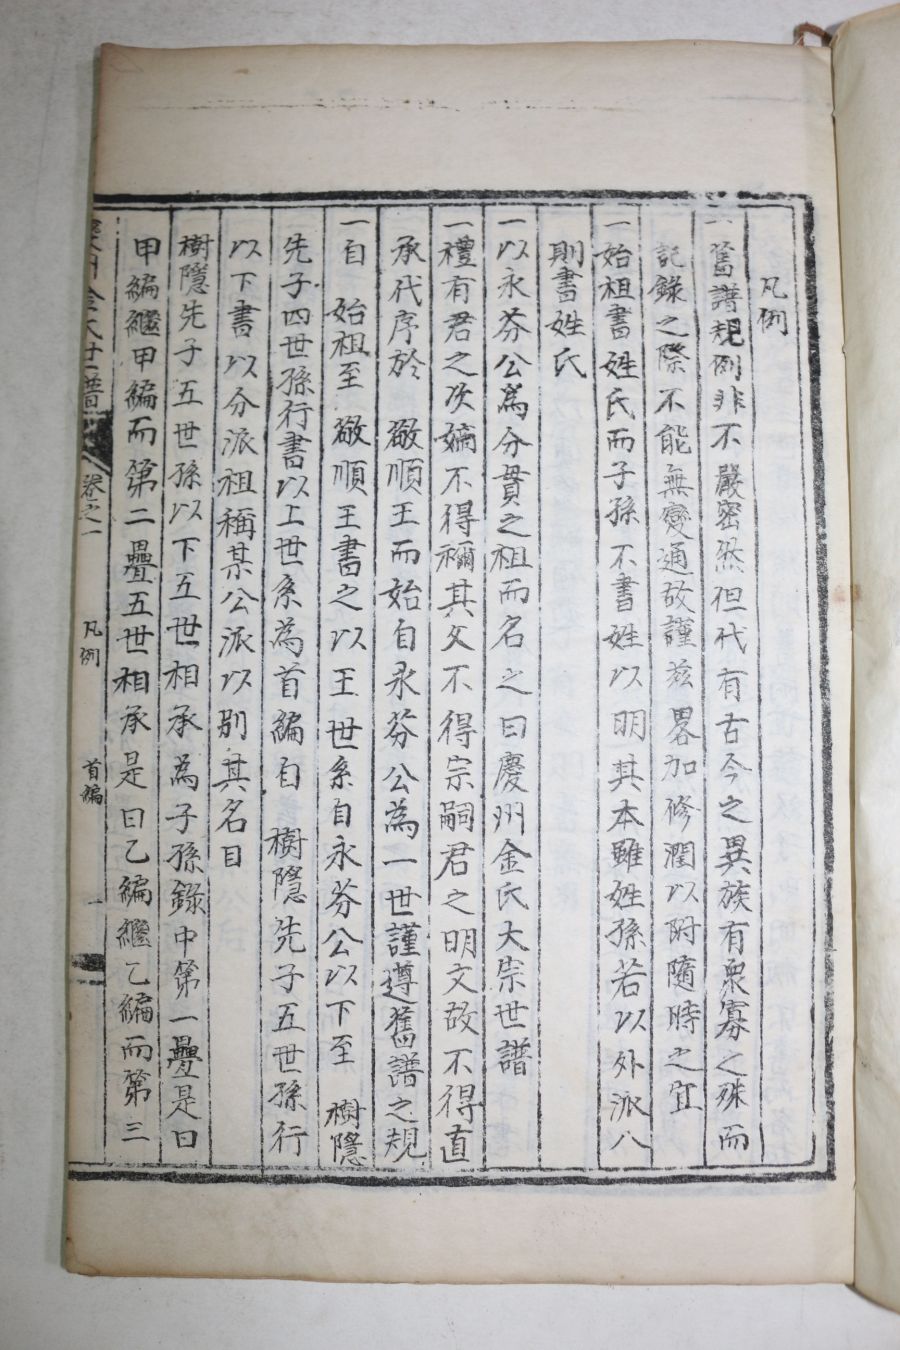 凡例
一舊譜規例非不嚴密然但代有古今之異族有衆寡之殊而
記錄之際不能無變通故謹玆畧加修潤以附隨時之宜
一始祖書姓氏而子孫不書姓以明其本雖姓孫若以外派八
則書姓氏
一以永芬公爲分貫之祖而名之曰慶州金氏大宗世譜
一禮有君之次嫡不得禰其父不得宗嗣君之明文故不得直
承代序於 敬順王而始自永芬公為一世謹遵舊譜之規
一自 始祖至 敬順王書之以王世系自永芬公以下至 樹隱
先子四世孫行書以上世系為首編自 樹隱先子五世孫行
以下書以分派祖稱某公派以別其名目
樹隱先子五世孫以下五世相承為子孫錄中第一疊是曰
甲編繼甲編而第二疊五世相承是曰乙編繼乙編而第三
金氏世譜 卷之一 凡例 首編 一